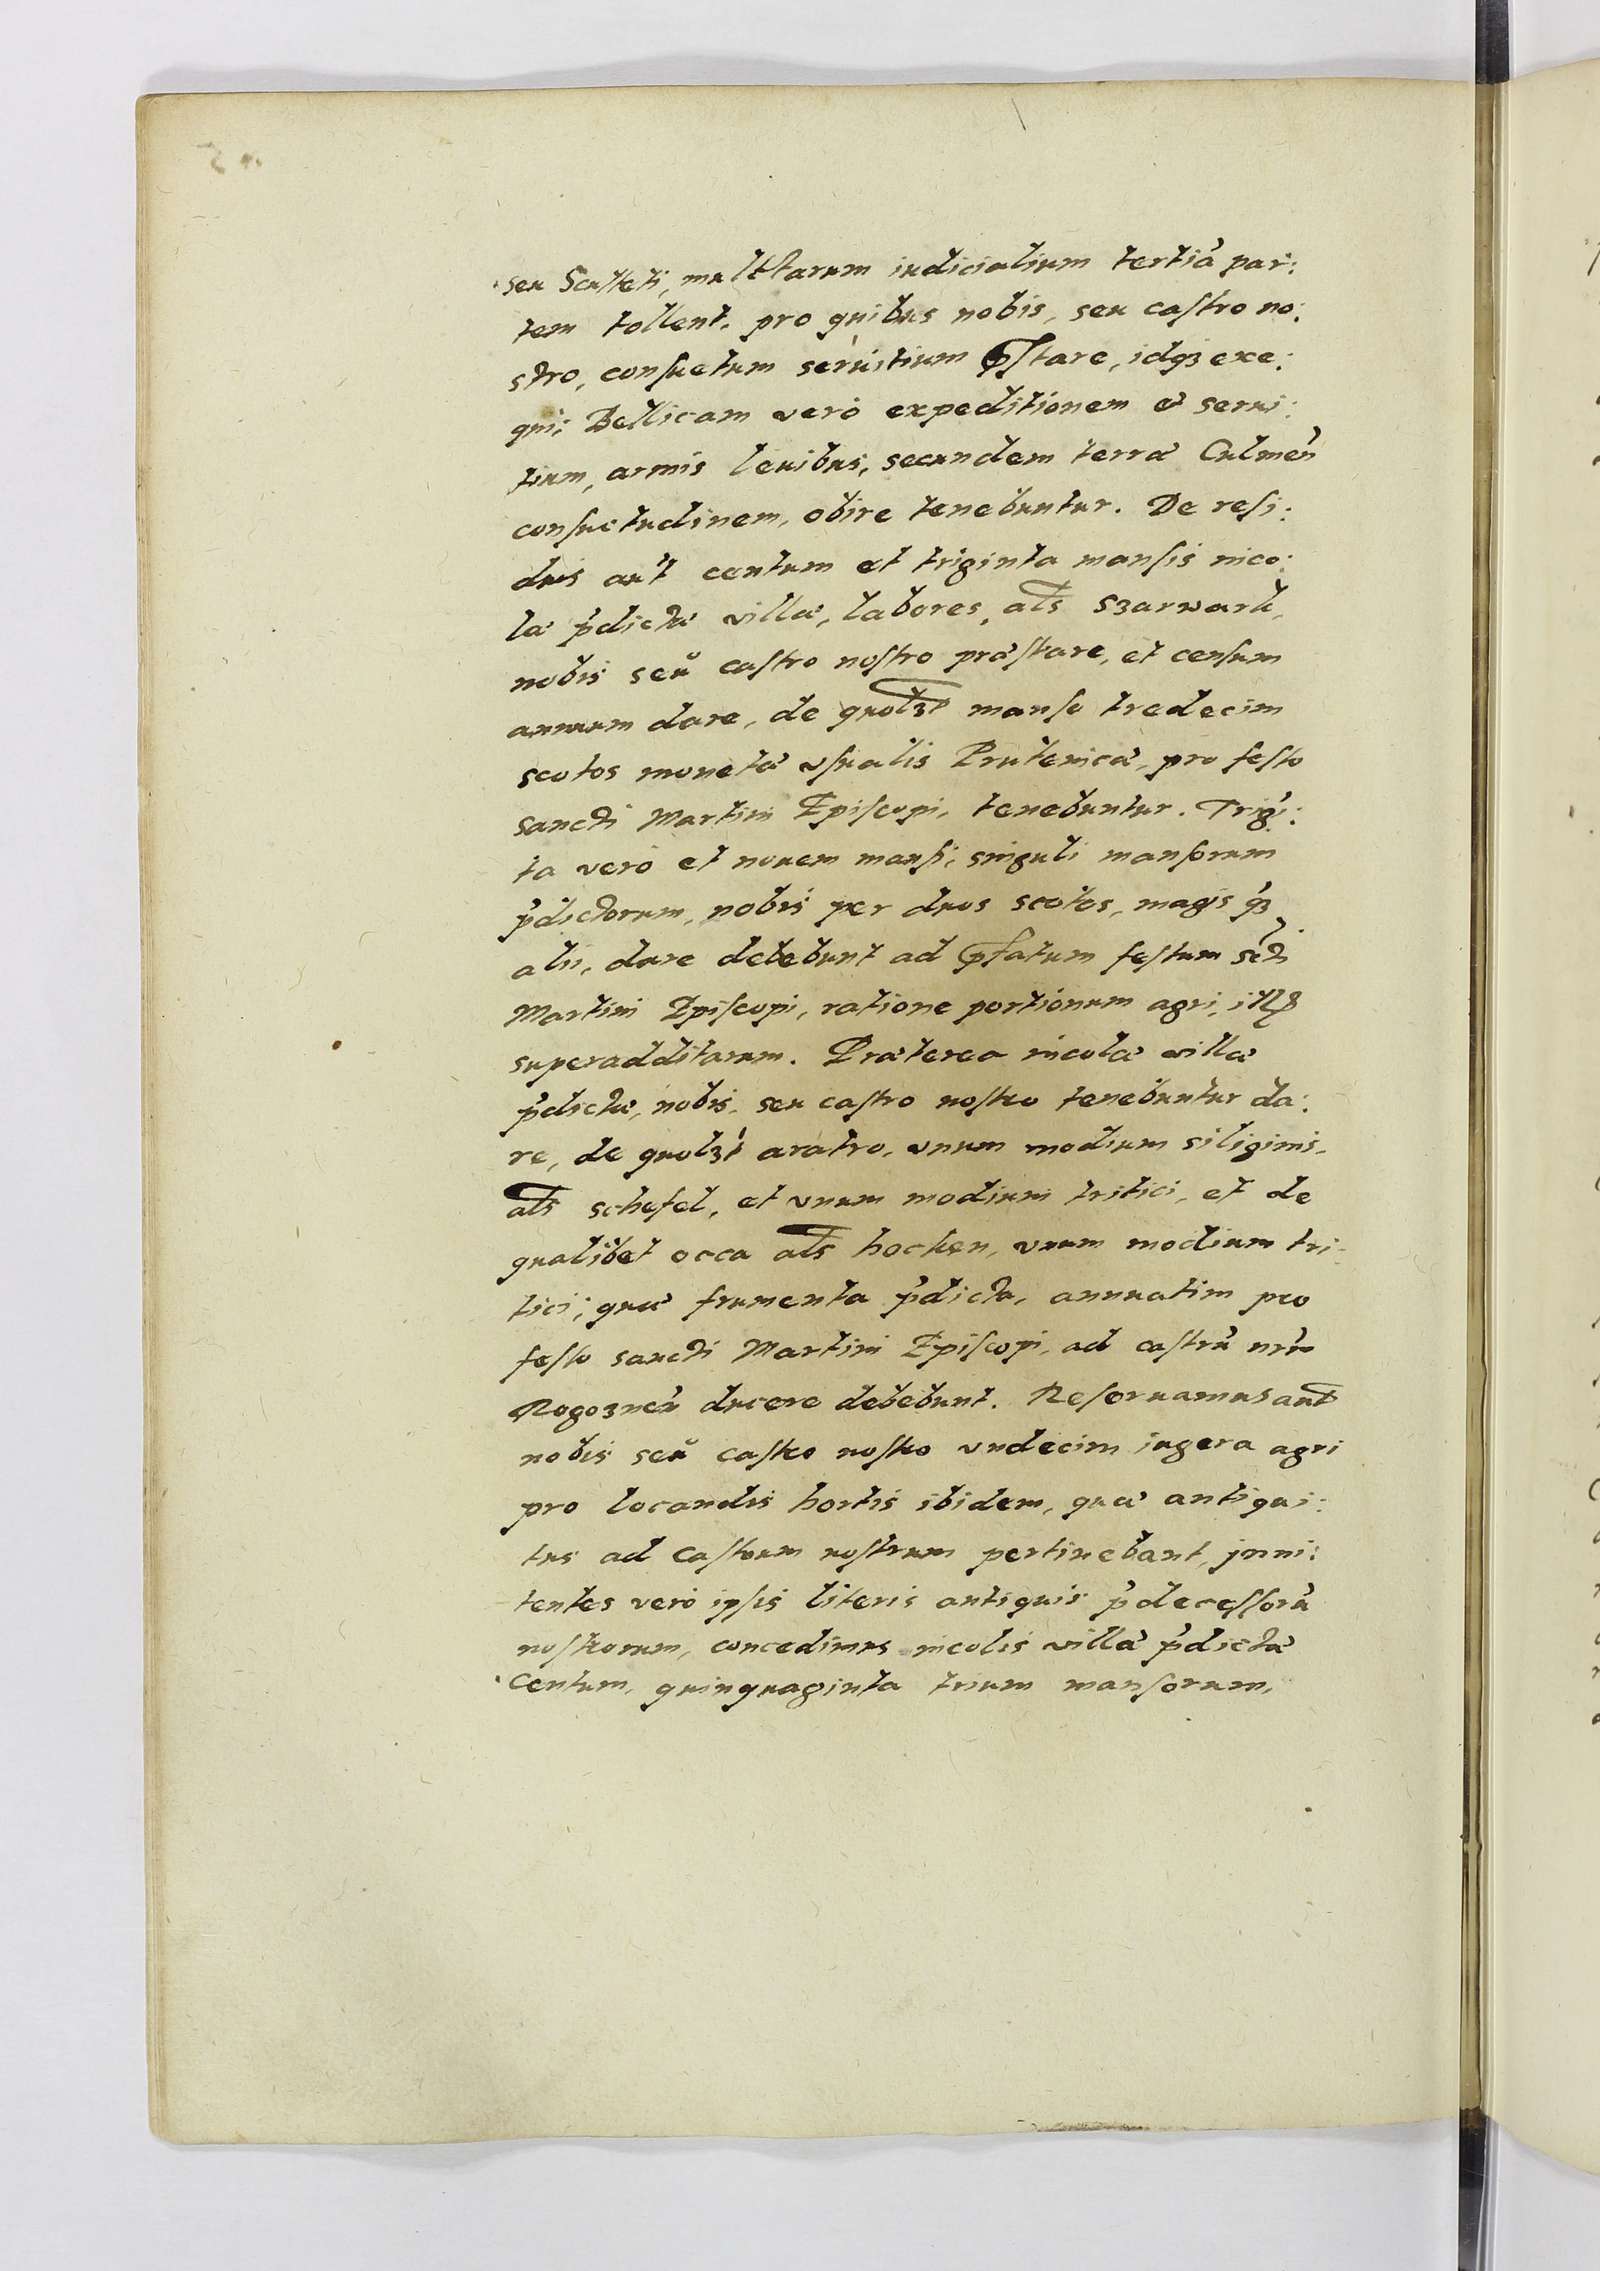 seu Sculteti, mulctarum iudicialium tertiã par:
tem tollent. pro quibus nobis, seu castro no:
stro, consuetum seruitium p̃stare, idqȝ exe:
qui; Bellicam verò expeditionem et serui:
tium, armis leuibus, secundem terræ Culmeñ
consuetudinem, obire tenebuntur. De resi:
duis aut̃ centum et triginta mansis inco:
læ p̃dictæ villæ, labores, al̃s Szarwark,
nobis seŭ castro nostro præstare, et censum
annuum dare, de quolȝt manso tredecim
scotos monetæ vsualis Prutenicæ, pro festo
sancti Martini Episcopi, tenebuntur. Trigĩ:
ta verò et nouem mansi, singuli mansorum
p̃dictorum, nobis per duos scotos, magis q̃ȝ
alij, dare debebunt ad p̃fatum festum sc̃ti
Martini Episcopi, ratione portionum agri, illꝝ
superadditarum. Præterea incolæ villæ
p̃dictæ, nobis, seu castro nostro tenebuntur da:
re, de quolȝt aratro, vnum modium siliginis,
al̃s schefel, et vnum modium tritici, et de
qualibet occa al̃s hocken, vnum modium tri:
tici; quæ frumenta p̃dicta, annuatim pro
festo sancti Martini Episcopi, ad castrũ nr̃m
Rogozneñ ducere debebunt. Reseruamus aut̃
nobis seŭ castro nostro vndecim iugera agri
pro locandis hortis ibidem, quæ antiqui:
tus ad castrum nostrum pertinebant, jnni:
tentes verò ipsis literis antiquis p̃decessorũ
nostrorum, concedimus incolis villæ p̃dictæ
centum, quinquaginta trium mansorum,